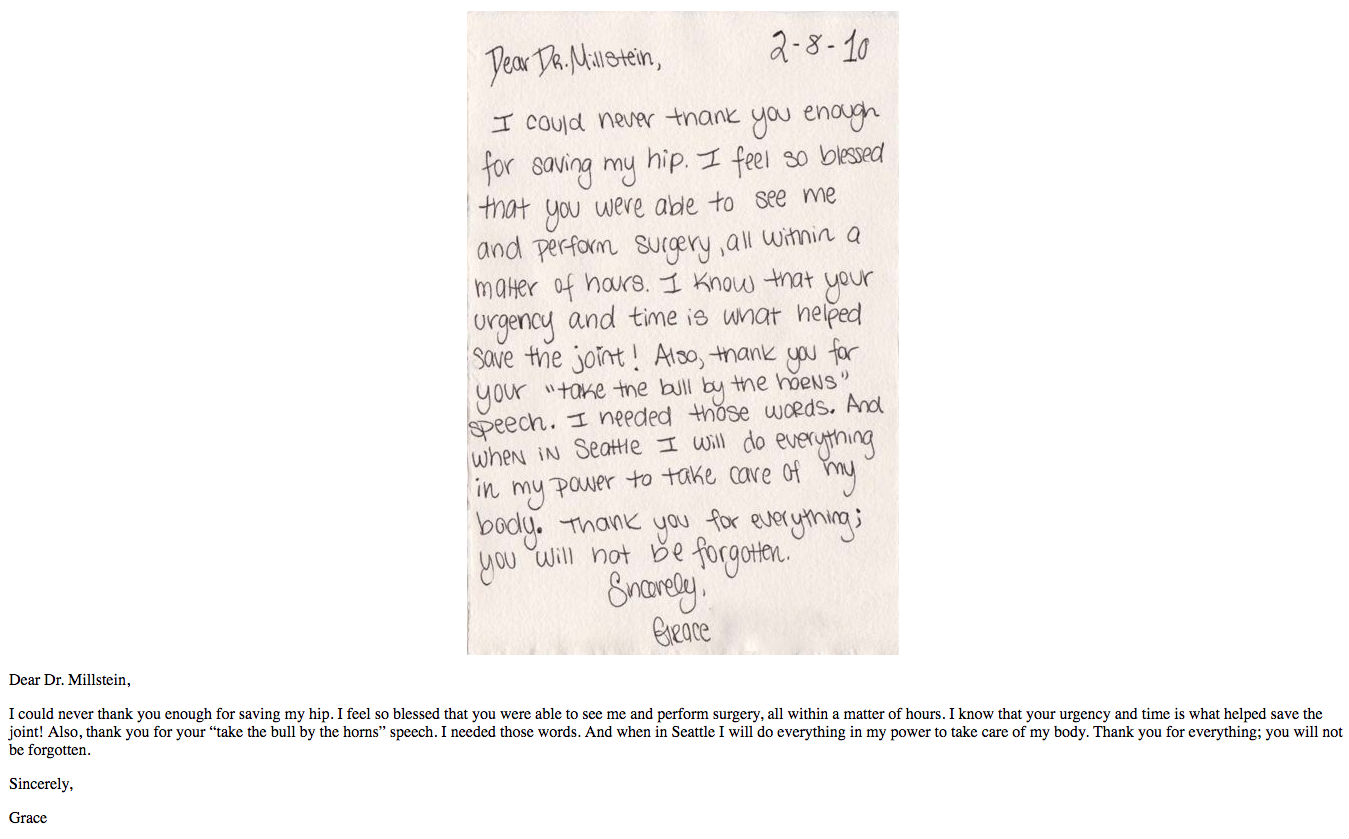 Dear DR. Millstein,
2-8-10
I could never thank you enough
for saving my hip. I feel so blessed
that you were able to see me
and perform surgery, all within a
matter of hours. I know that your
urgency and time is what helped
save the joint! Also, thank you for
your "take the bull by the hoRNs"
speech. I needed those woRds. And
wheN iN Seattle I will do everything
in my power to take care of my
body. Thank you for everything;
you will not be forgotten.
Sincerely,
GRace
Dear Dr. Millstein,
I could never thank you enough for saving my hip. I feel so blessed that you were able to see me and perform surgery, all within a matter of hours. I know that your urgency and time is what helped save the
joint! Also, thank you for your “take the bull by the horns” speech. I needed those words. And when in Seattle I will do everything in my power to take care of my body. Thank you for everything; you will not
be forgotten.
Sincerely,
Grace